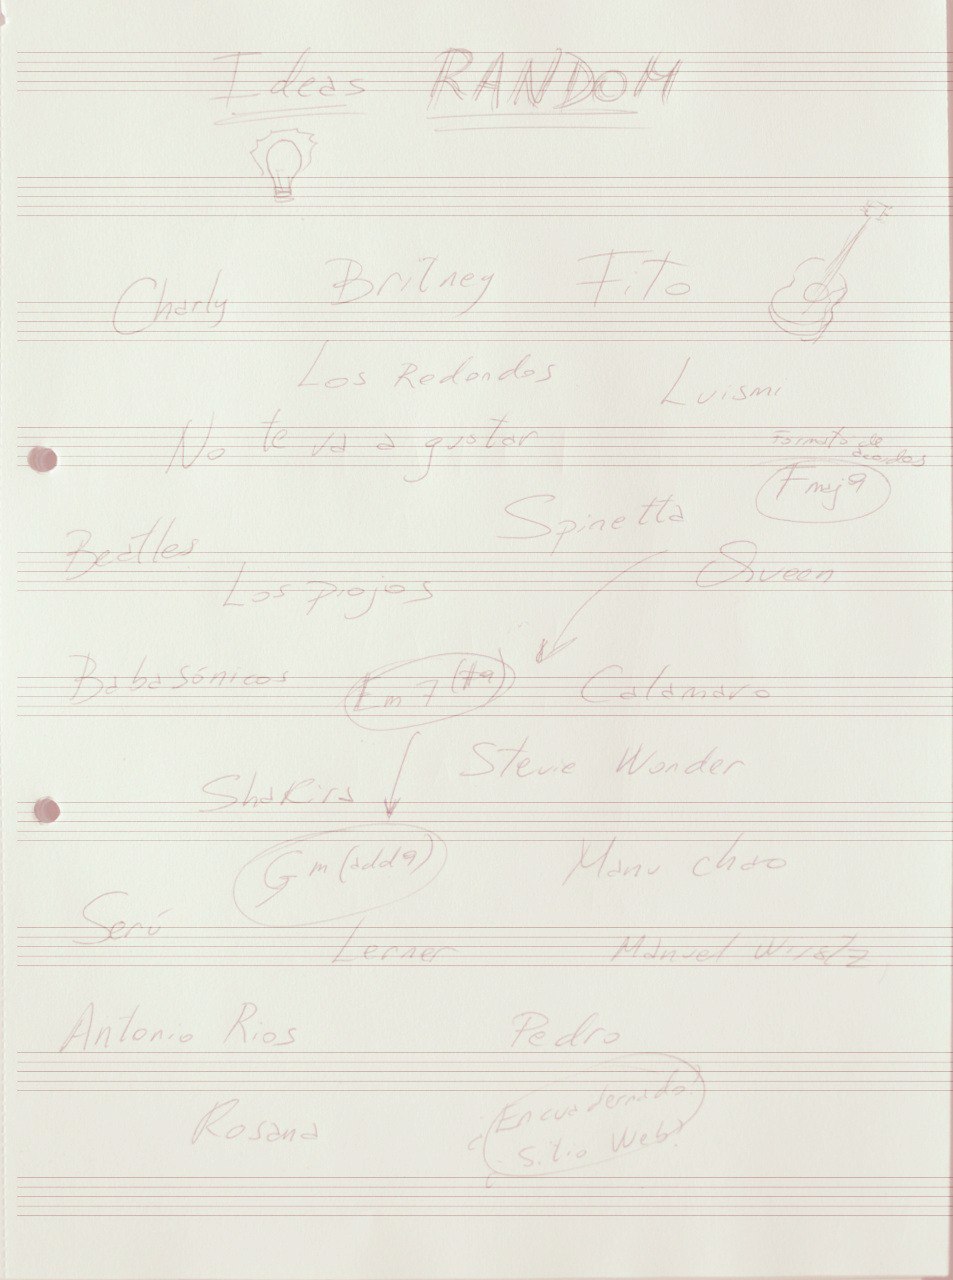 Ideas RANDOM
Charly Britney Fito
Los Redondos
Luismi
No te va a gustar
Formato de
acordes
Fmaj9
Spinetta
Beatles
Queen
Los piojos
Babasónicos Em7(#9) Calamaro
Stevie Wonder
Shakira
Gm(add9) Manu chao
Serú
Lerner Manuel Wirtz
Antonio Rios Pedro
Encuadernado?
Rosana
Sitio Web?